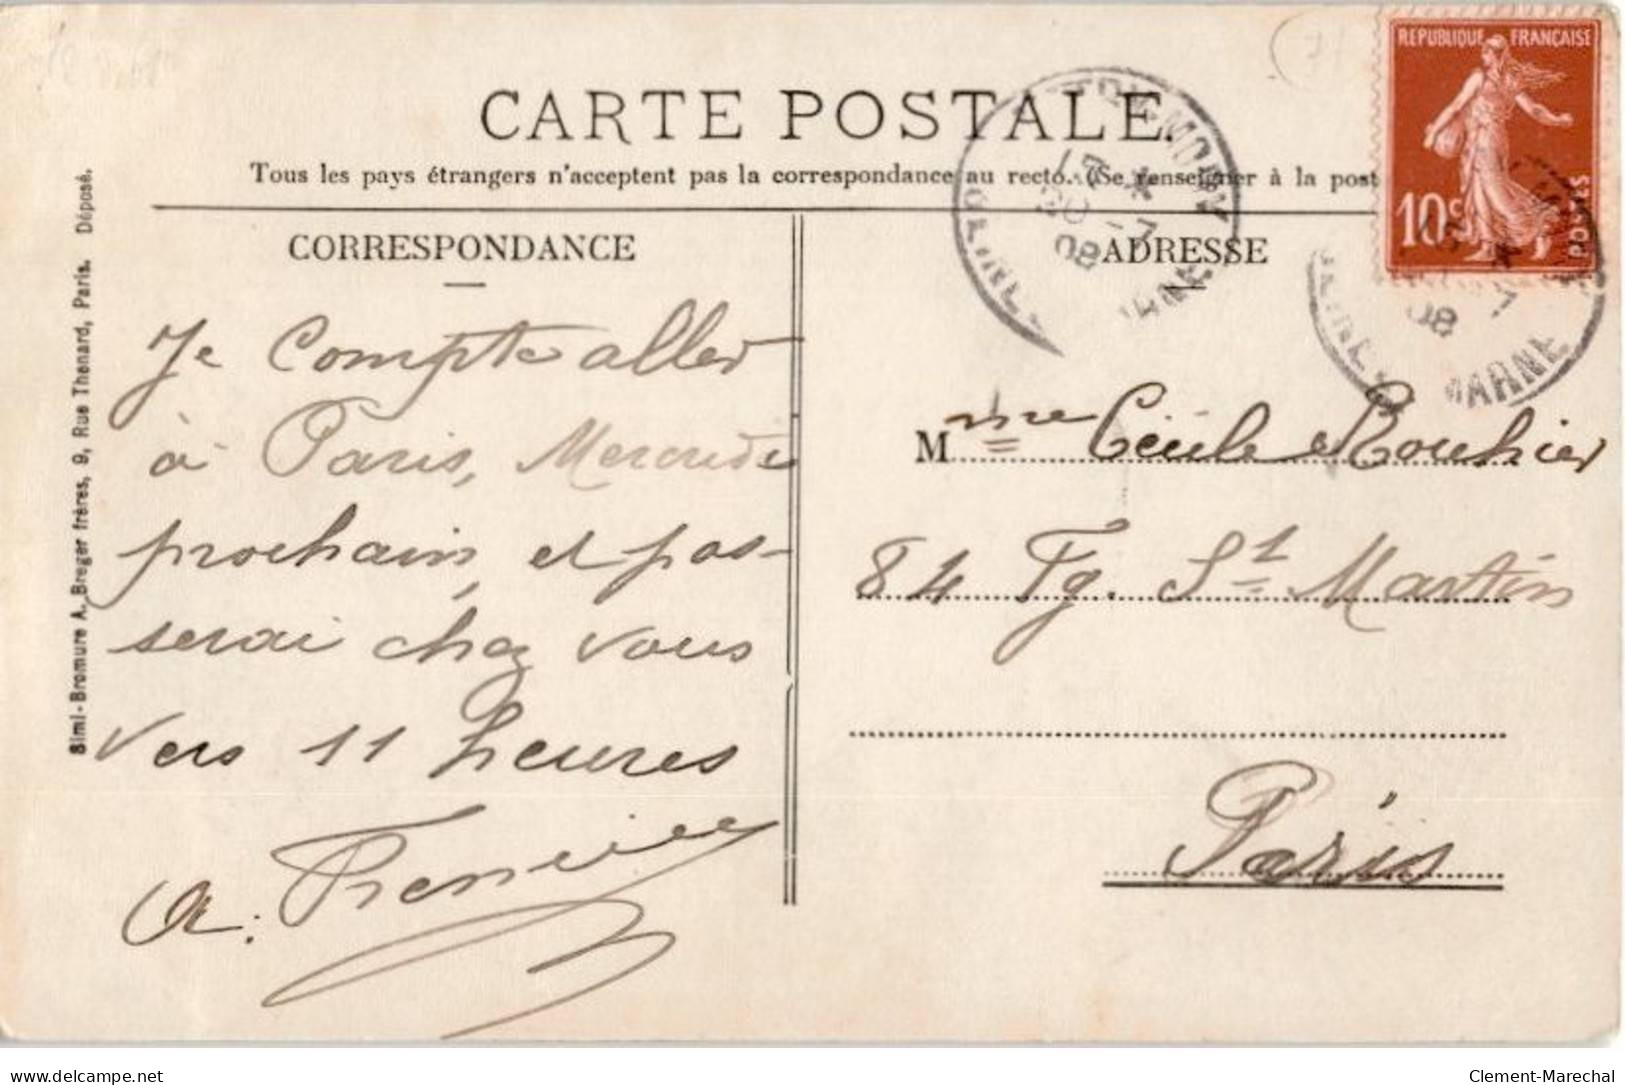 CARTE POSTALE
Tous les pays étrangers n'acceptent pas la correspondance au recto. (Se renseigner à la post
CORRESPONDANCE
Je Compte aller
à Paris, Mercredi
prochain, et pas-
serai chez vous
vers 11 heures
A.
Simi-Bromure A. Breger frères, 9, Rue Thenard, Paris. Déposé.
ADRESSE
Mme Cécile Rouhier
84 Fg. St Martin
Paris
REPUBLIQUE FRANÇAISE
10c
POSTES
08
MARNE
08
delcampe.net
Clement-Marechal